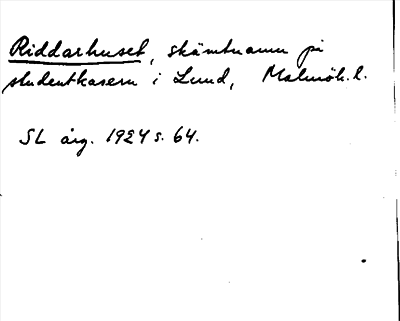 Riddarhuset, skämtnamn på
studentkasern i Lund, Malmöh.l.
SL årg. 1924 s. 64.